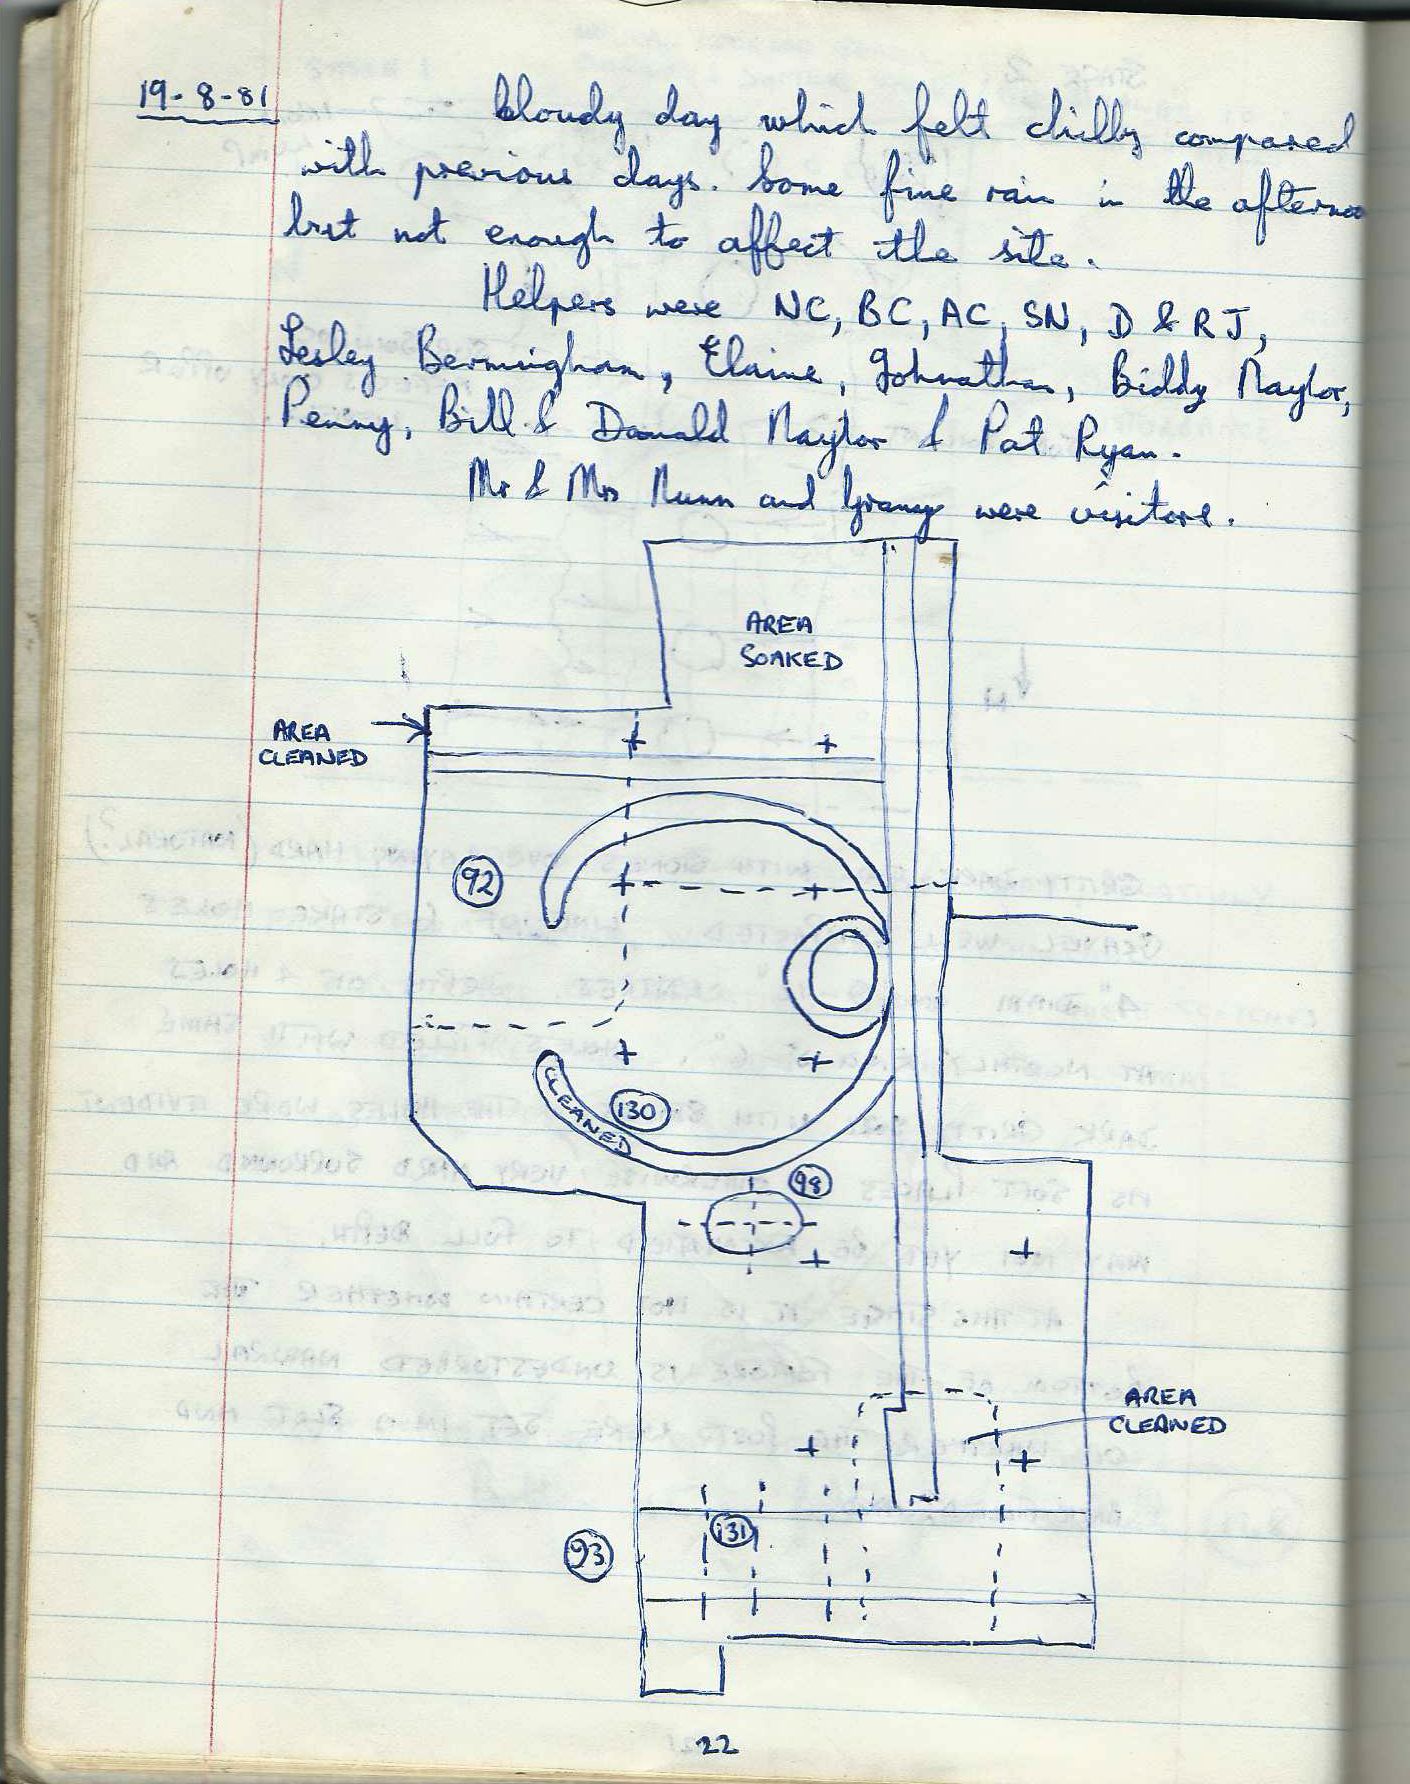 19-8-81
Cloudy day which felt chilly compared
with previous days. Some fine rain in the afternoo
but not enough to affect the site.
Helpers were NC, BC, AC, SN, D & RJ,
Lesley Bermingham, Elaine, Johnathan, Biddy Naylor,
Penny, Bill & Donald Naylor & Pat Ryan.
Mr & Mrs Nunn and Granny were visitors.
AREA
SOAKED
AREA
CLEANED
92
CLEANED
130
98
AREA
CLEANED
131
93
22